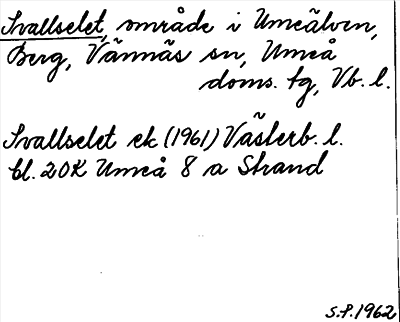 Svallselet, område i Umeälven,
Berg, Vännäs sn, Umeå
doms. tg, Vb. l.
Svallselet ek (1961) Västerb. l.
bl. 20K Umeå 8 a Strand
S.S. 1962